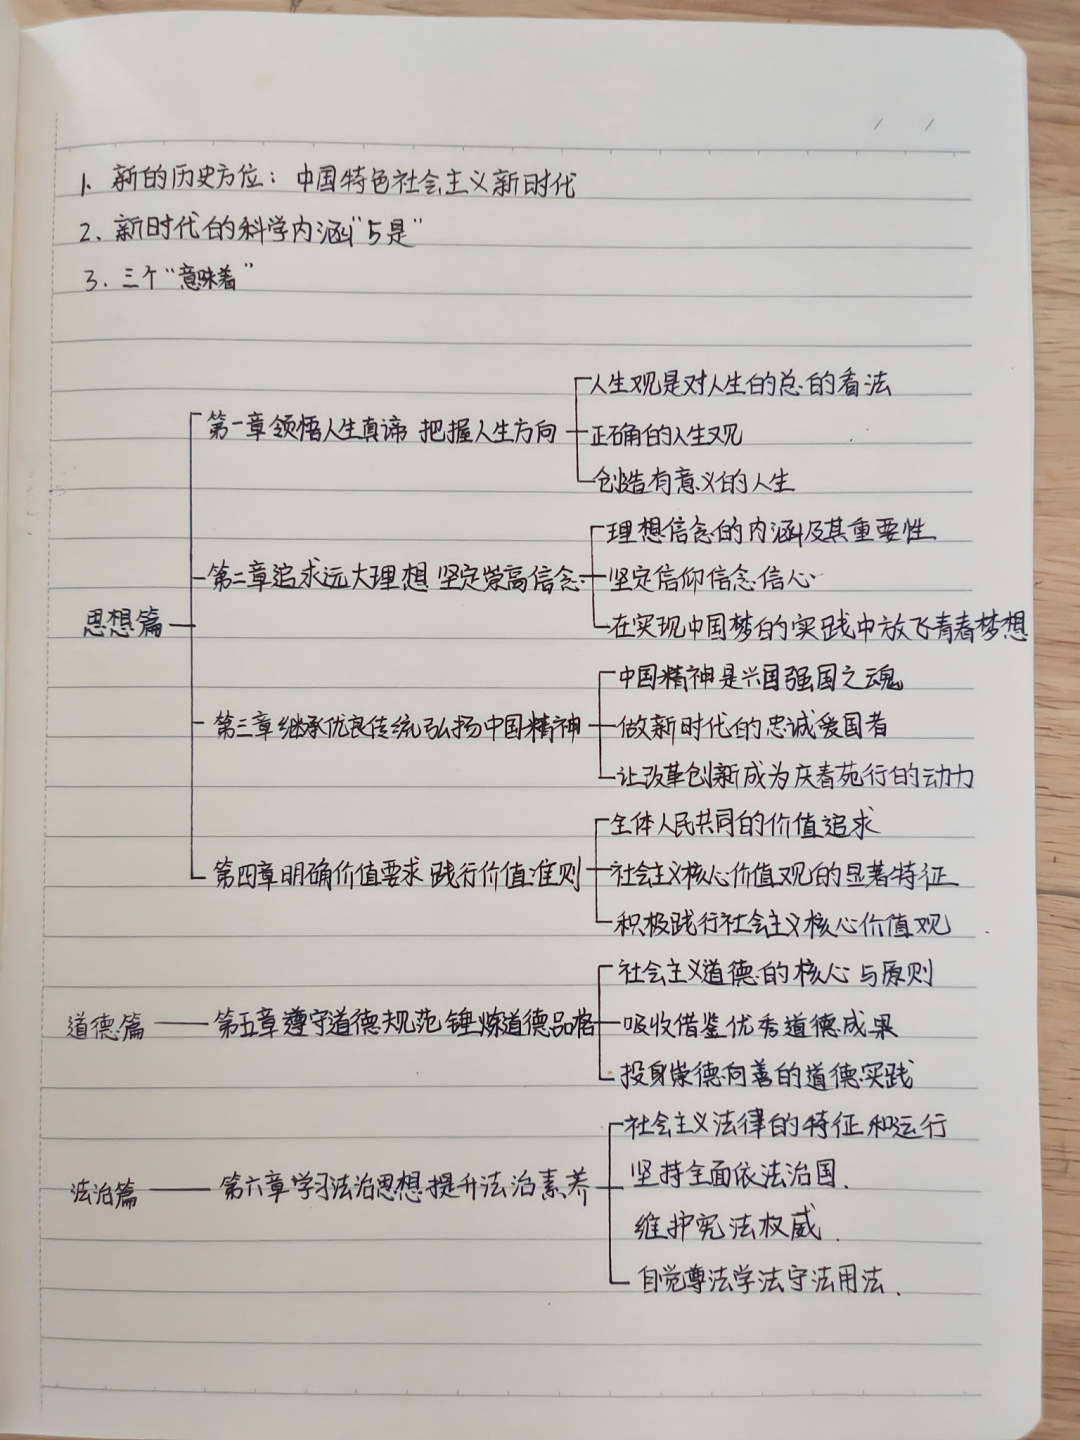 1. 新的历史方位：中国特色社会主义新时代
2. 新时代的科学内涵"5是"
3. 三个"意味着"
思想篇
第一章领悟人生真谛 把握人生方向
人生观是对人生的总的看法
正确的人生观
创造有意义的人生
第二章追求远大理想 坚定崇高信念
理想信念的内涵及其重要性
坚定信仰信念信心
在实现中国梦的实践中放飞青春梦想
第三章继承优良传统弘扬中国精神
中国精神是兴国强国之魂
做新时代的忠诚爱国者
让改革创新成为庆春苑行的动力
第四章明确价值要求 践行价值准则
全体人民共同的价值追求
社会主义核心价值观的显著特征
积极践行社会主义核心价值观
道德篇
第五章遵守道德规范 锤炼道德品格
社会主义道德的核心与原则
吸收借鉴优秀道德成果
投身崇德向善的道德实践
法治篇
第六章学习法治思想提升法治素养
社会主义法律的特征和运行
坚持全面依法治国.
维护宪法权威.
自觉尊法学法守法用法.